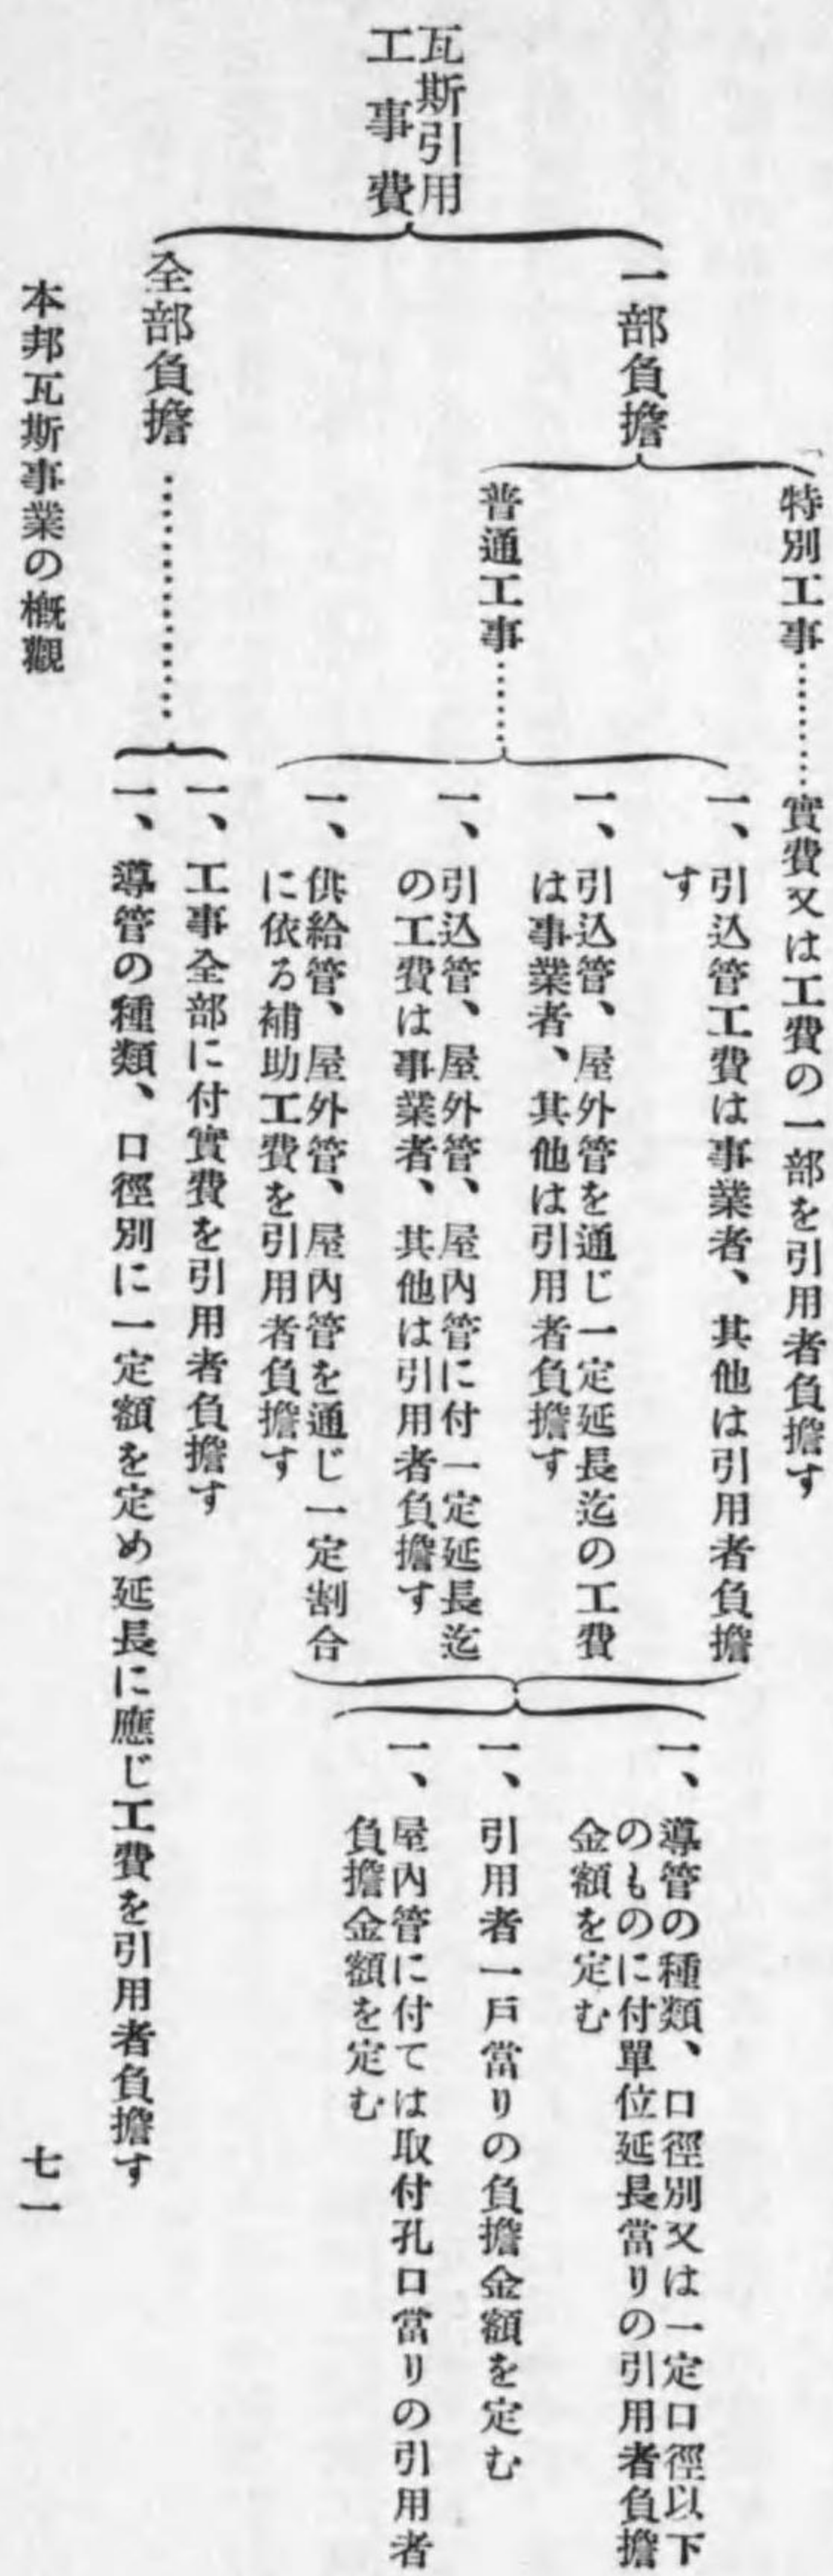 瓦斯引用
工事費
一部負擔
特別工事………實費又は工費の一部を引用者負擔す
普通工事……
一、引込管工費は事業者、其他は引用者負擔
す
一、引込管、屋外管を通じ一定延長迄の工費
は事業者、其他は引用者負擔す
一、引込管、屋外管、屋內管に付一定延長迄
の工費は事業者、其他は引用者負擔す
一、供給管、屋外管、屋內管を通じ一定割合
に依る補助工費を引用者負擔す
一、導管の種類、口徑別又は一定口徑以下
のものに付單位延長當りの引用者負擔
金額を定む
一、引用者一戶當りの負擔金額を定む
一、屋內管に付ては取付孔口當りの引用者
負擔金額を定む
全部負擔………………
一、工事全部に付實費を引用者負擔す
一、導管の種類、口徑別に一定額を定め延長に應じ工費を引用者負擔す
本邦瓦斯事業の槪觀
七一